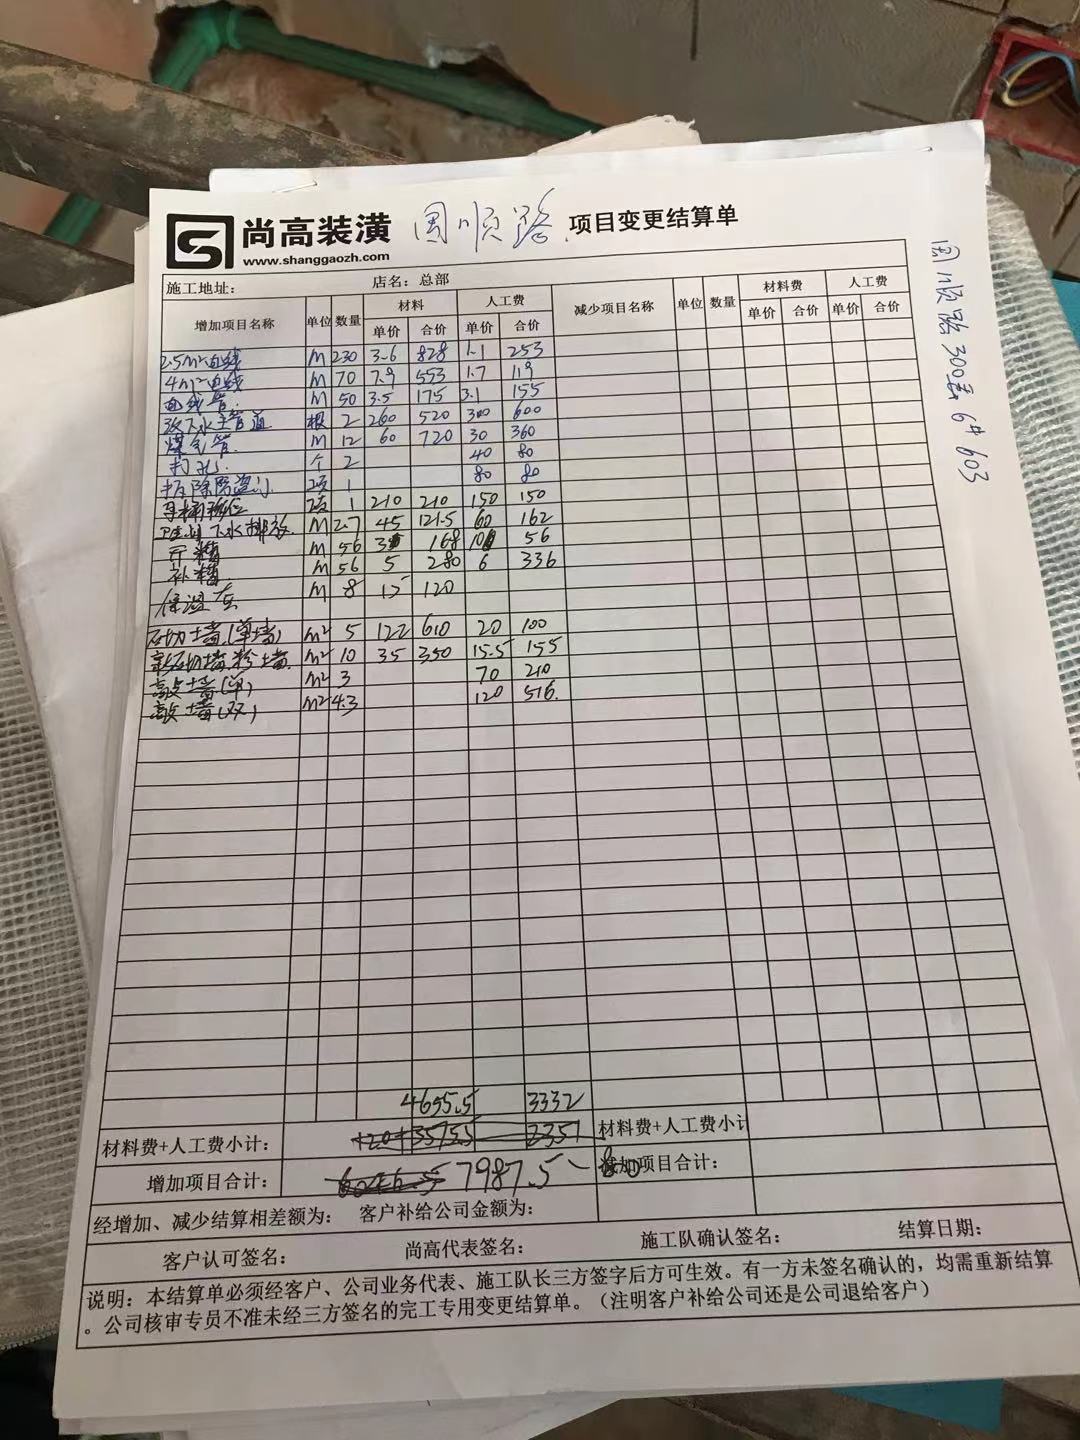 尚高装潢 国顺路 项目变更结算单
www.shanggaozh.com
施工地址： 店名：总部
增加项目名称 单位 数量 材料 人工费 减少项目名称 单位 数量 材料费 人工费
单价 合价 单价 合价 单价 合价 单价 合价
2.5m²电线 M 230 3.6 828 1.1 253
4m²电线 M 70 7.9 553 1.7 119
电线管 M 50 3.5 175 3.1 155
改下水主管道 根 2 260 520 300 600
煤气管 M 12 60 720 30 360
打孔 个 2 40 80
拆除防盗门 项 1 80 80
马桶移位 项 1 210 210 150 150
下水排放 M 2.7 45 121.5 60 162
开槽 M 56 3 168 1 56
补槽 M 56 5 280 6 336
保温 M 8 15 120
石切墙(单墙) m² 5 122 610 20 100
新石切墙粉墙 m² 10 35 350 15.5 155
敲墙(单) m² 3 70 210
敲墙(双) m² 4.3 120 516
4655.5 3332
材料费+人工费小计： 120+3575.5 2351 材料费+人工费小计
增加项目合计： 6046.5 7987.5-80 减加项目合计：
经增加、减少结算相差额为： 客户补给公司金额为：
客户认可签名： 尚高代表签名： 施工队确认签名： 结算日期：
说明：本结算单必须经客户、公司业务代表、施工队长三方签字后方可生效。有一方未签名确认的，均需重新结算
。公司核审专员不准未经三方签名的完工专用变更结算单。（注明客户补给公司还是公司退给客户）
国顺路300弄6#603